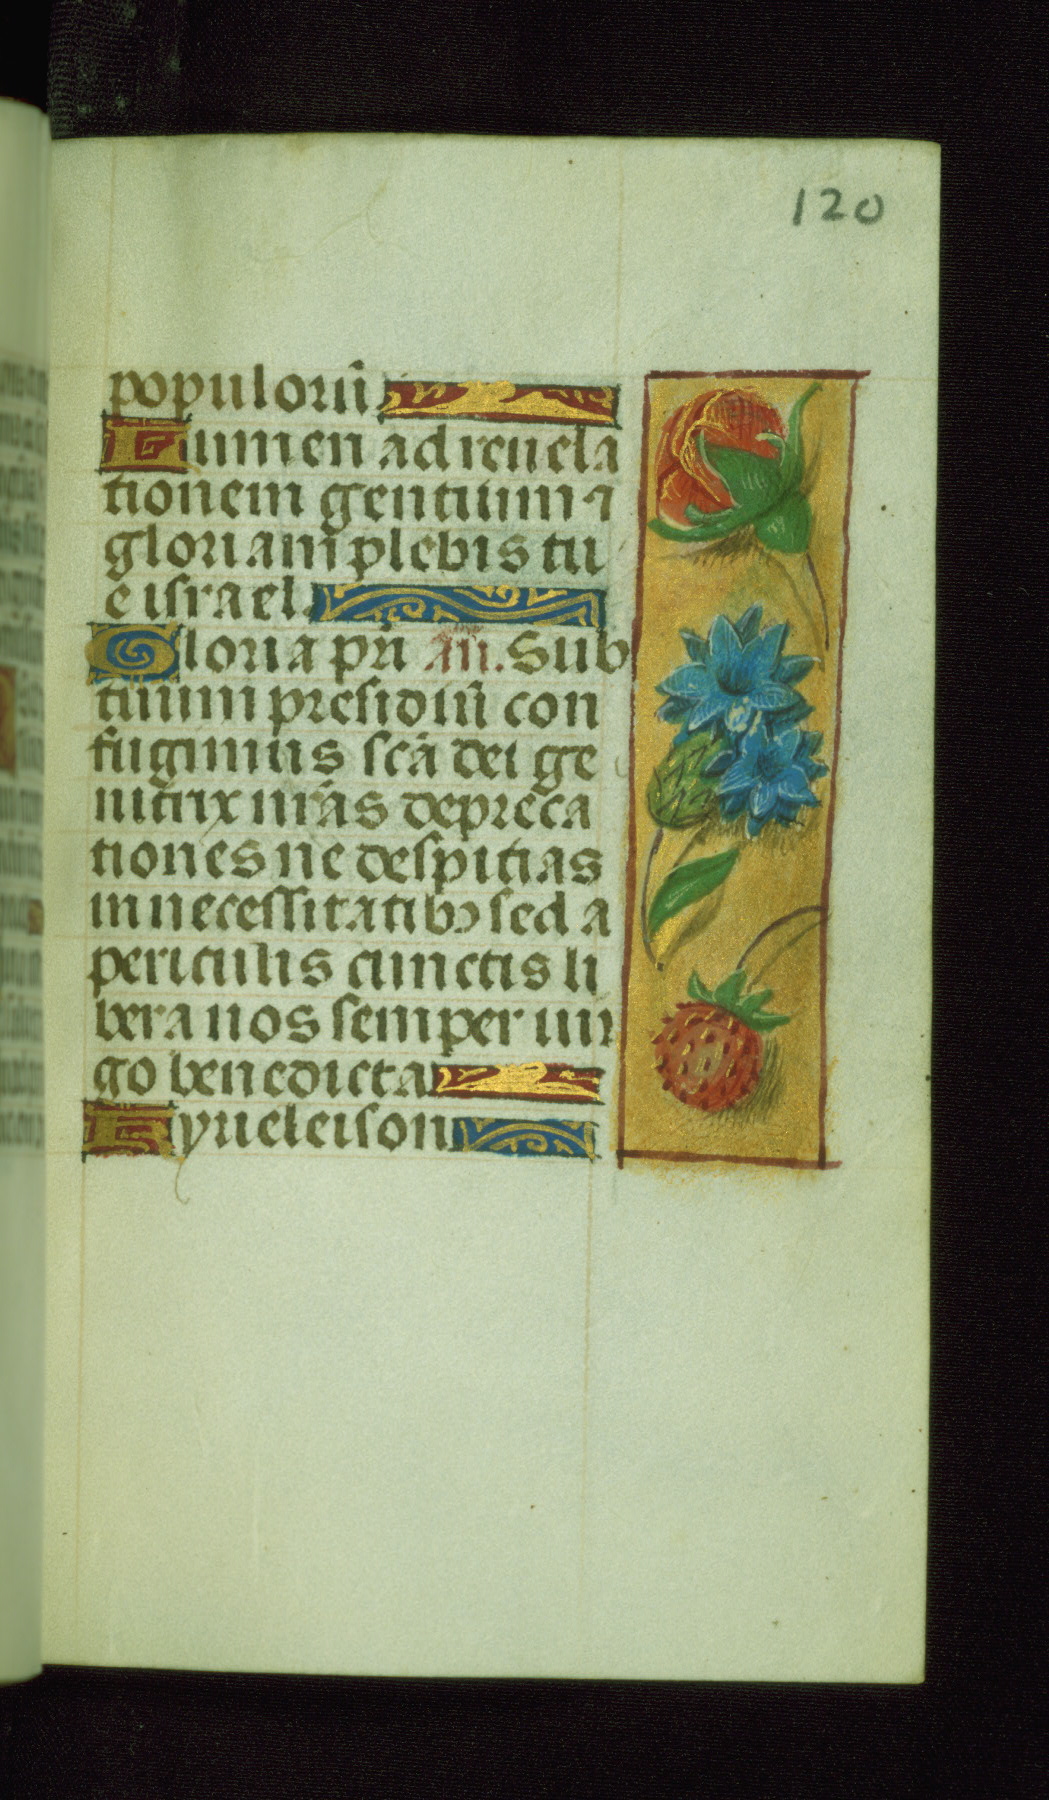 120
populorū
Lumen ad reuela
tionem gentium ⁊
gloriam plebis tu
e israel.
Gloria pr̄i Añ. Sub
tuum presidiū con
fugimus sc̄a dei ge
nitrix nr̄as depreca
tiones ne despicias
in necessitatibꝫ sed a
periculis cunctis li
bera nos semper uir
go benedicta
Kyrieleison